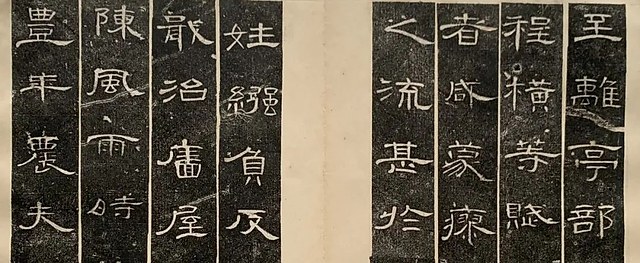 至離亭部
程橫等賦
者咸蒙瘳
之流甚於
姓繦負反
戢治廧屋
陳風雨時
豐年農夫